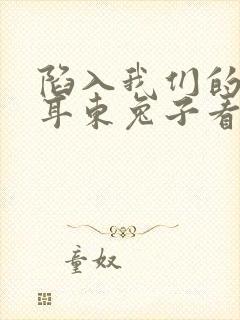 陷入我们的
耳朿兔子看
童奴